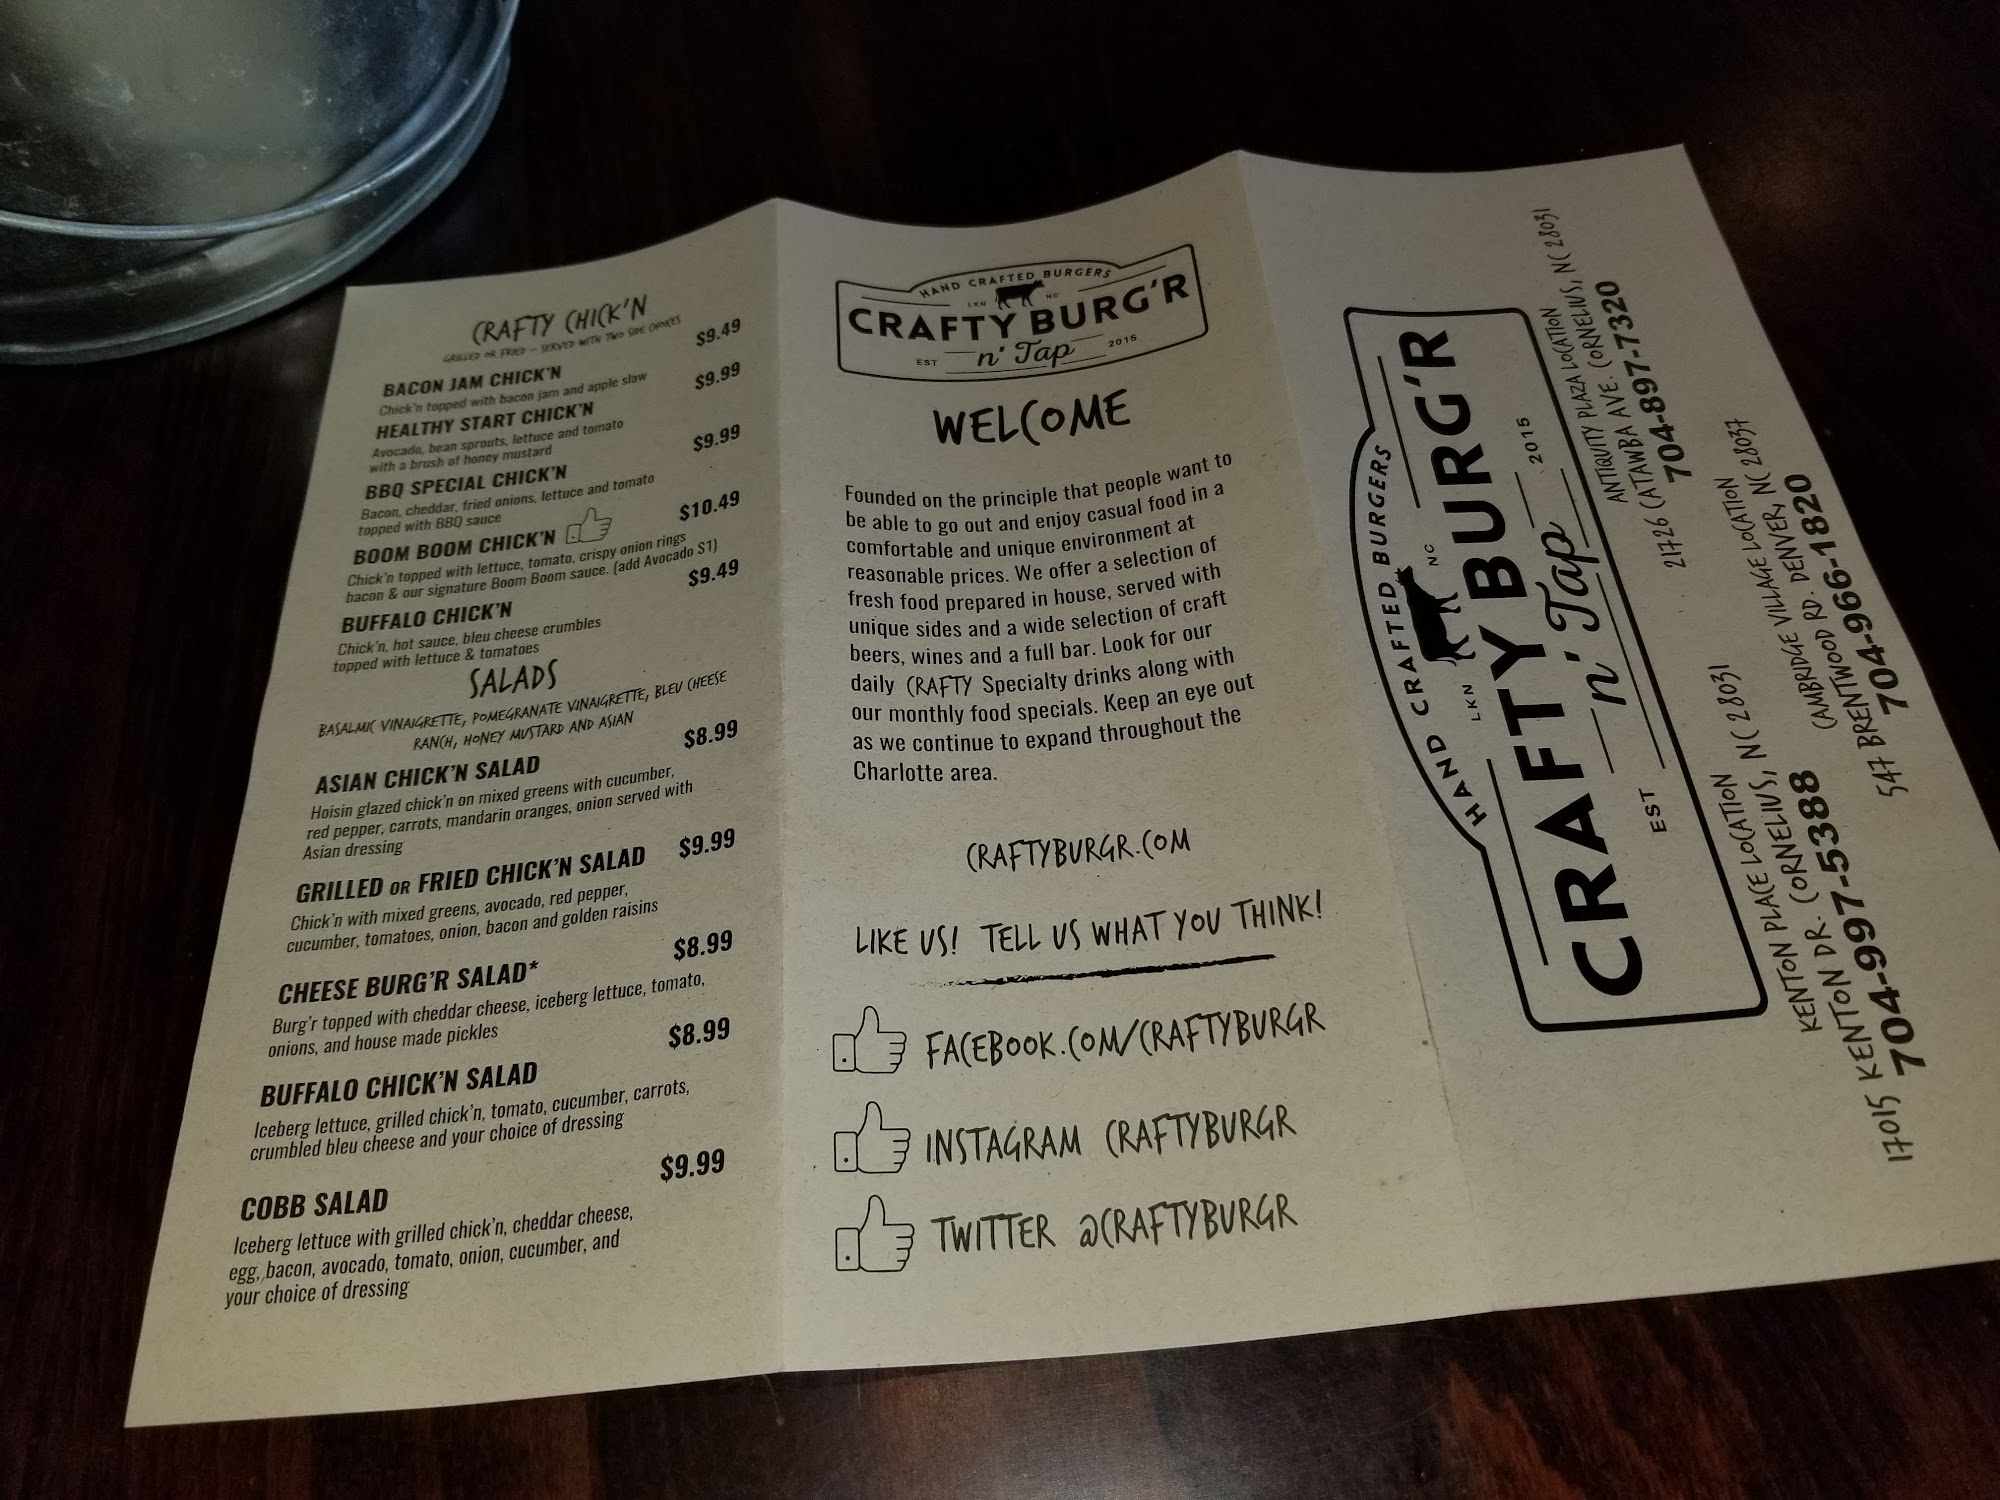 CRAFTY CHICK'N
GRILLED OR FRIED – SERVED WITH TWO SIDE CHOICES
BACON JAM CHICK'N $9.49
Chick'n topped with bacon jam and apple slaw
HEALTHY START CHICK'N $9.99
Avocado, bean sprouts, lettuce and tomato
with a brush of honey mustard
BBQ SPECIAL CHICK'N $9.99
Bacon, cheddar, fried onions, lettuce and tomato
topped with BBQ sauce
BOOM BOOM CHICK'N $10.49
Chick'n topped with lettuce, tomato, crispy onion rings
bacon & our signature Boom Boom sauce. (add Avocado $1)
BUFFALO CHICK'N $9.49
Chick'n, hot sauce, bleu cheese crumbles
topped with lettuce & tomatoes
SALADS
BASALMIC VINAIGRETTE, POMEGRANATE VINAIGRETTE, BLEU CHEESE
RANCH, HONEY MUSTARD AND ASIAN
ASIAN CHICK'N SALAD $8.99
Hoisin glazed chick'n on mixed greens with cucumber,
red pepper, carrots, mandarin oranges, onion served with
Asian dressing
GRILLED OR FRIED CHICK'N SALAD $9.99
Chick'n with mixed greens, avocado, red pepper,
cucumber, tomatoes, onion, bacon and golden raisins
CHEESE BURG'R SALAD* $8.99
Burg'r topped with cheddar cheese, iceberg lettuce, tomato,
onions, and house made pickles
BUFFALO CHICK'N SALAD $8.99
Iceberg lettuce, grilled chick'n, tomato, cucumber, carrots,
crumbled bleu cheese and your choice of dressing
COBB SALAD $9.99
Iceberg lettuce with grilled chick'n, cheddar cheese,
egg, bacon, avocado, tomato, onion, cucumber, and
your choice of dressing
HAND CRAFTED BURGERS
LKN NC
CRAFTY BURG'R
EST n' Tap 2015
WELCOME
Founded on the principle that people want to
be able to go out and enjoy casual food in a
comfortable and unique environment at
reasonable prices. We offer a selection of
fresh food prepared in house, served with
unique sides and a wide selection of craft
beers, wines and a full bar. Look for our
daily CRAFTY Specialty drinks along with
our monthly food specials. Keep an eye out
as we continue to expand throughout the
Charlotte area.
CRAFTYBURGR.COM
LIKE US! TELL US WHAT YOU THINK!
FACEBOOK.COM/CRAFTYBURGR
INSTAGRAM CRAFTYBURGR
TWITTER @CRAFTYBURGR
HAND CRAFTED BURGERS
LKN NC
CRAFTY BURG'R
EST n' Tap 2015
ANTIQUITY PLAZA LOCATION
21726 CATAWBA AVE. CORNELIUS, NC 28031
704-897-7320
KENTON PLACE LOCATION
17015 KENTON DR. CORNELIUS, NC 28031
704-997-5388
CAMBRIDGE VILLAGE LOCATION
547 BRENTWOOD RD. DENVER, NC 28037
704-966-1820